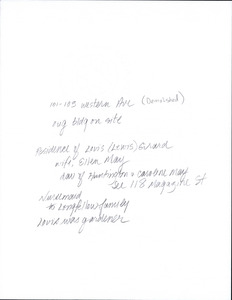 101-103 Western Ave (Demolished)
orig bldg on site
Residence of Louis (Lewis) Girard
wife, Ellen May
dau of Huntington & Caroline May
See 118 Magazine St
Nursemaid
to Longfellow family
Louis was gardener